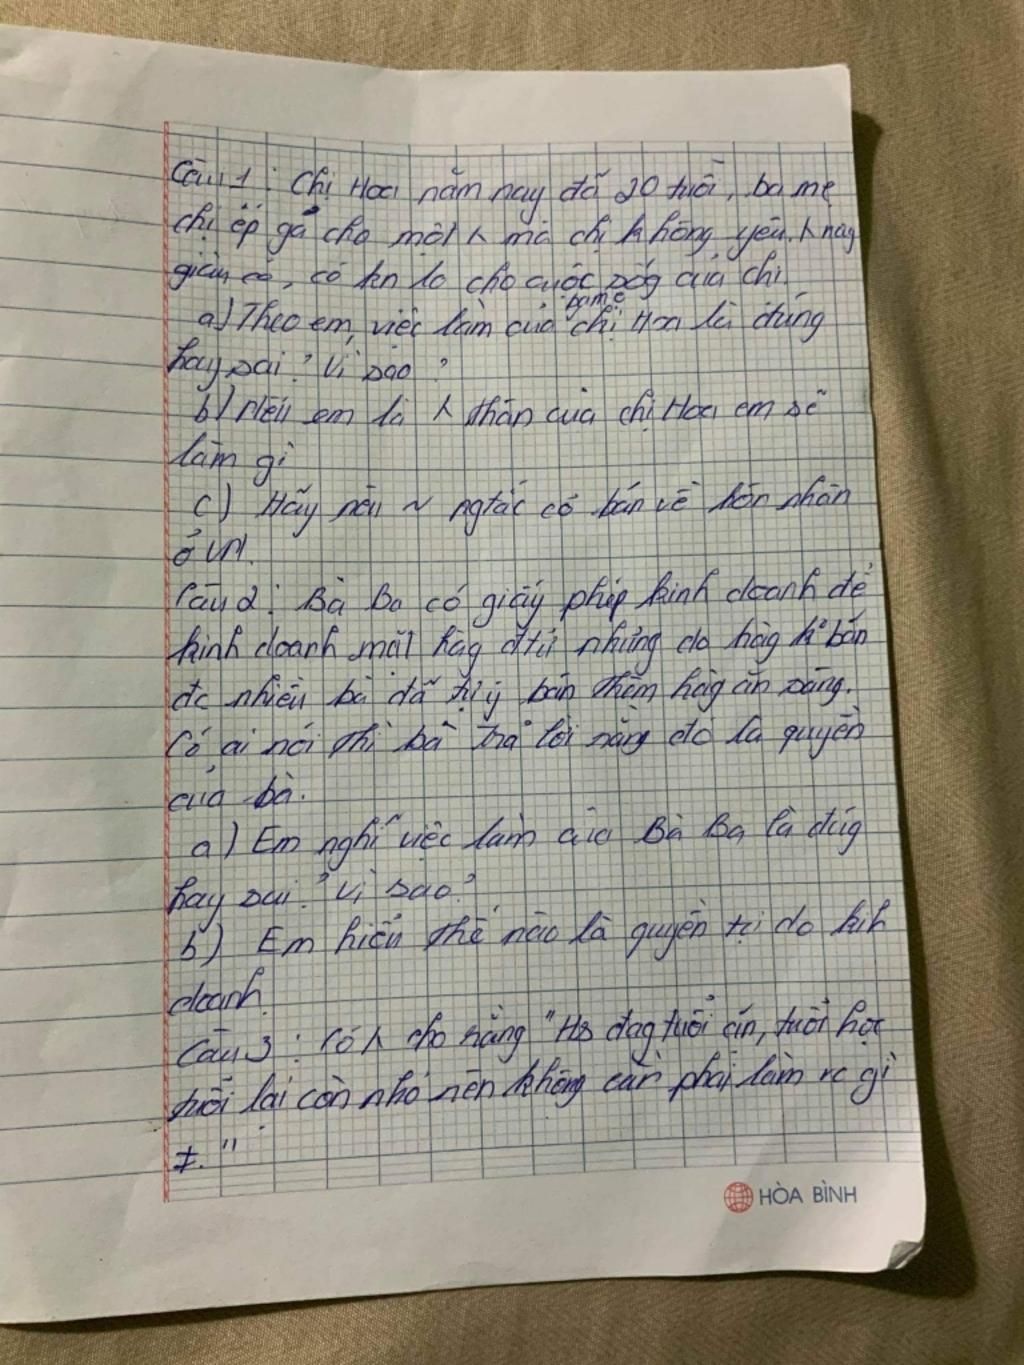 Câu 1: Chị Hoa năm nay đã 20 tuổi, ba mẹ
chị ép gả cho một ⅄ mà chị không yêu. ⅄ này
giàu có, có kn lo cho cuộc sốg của chị.
ba mẹ
a) Theo em, việc làm của chị Hoa là đúng
hay sai? Vì sao?
b) Nếu em là ⅄ thân của chị Hoa em sẽ
làm gì
c) Hãy nêu ~ ngtắc cơ bản về hôn nhân
ở VN.
Câu 2: Bà Ba có giấy phép kinh doanh để
kinh doanh mặt hàg đtử nhưng do hàg k° bán
đc nhiều bà đã tự ý bán thêm hàg ăn sáng.
Có ai nói thì bà trả lời rằng đó là quyền
của bà.
a) Em nghĩ việc làm của Bà Ba là đúg
hay sai? Vì sao?
b) Em hiểu thế nào là quyền tự do kih
doanh.
Câu 3: Có ⅄ cho rằng "Hs đag tuổi ăn, tuổi học
tuổi lại còn nhỏ nên không cần phải làm vc gì
≠."
HÒA BÌNH